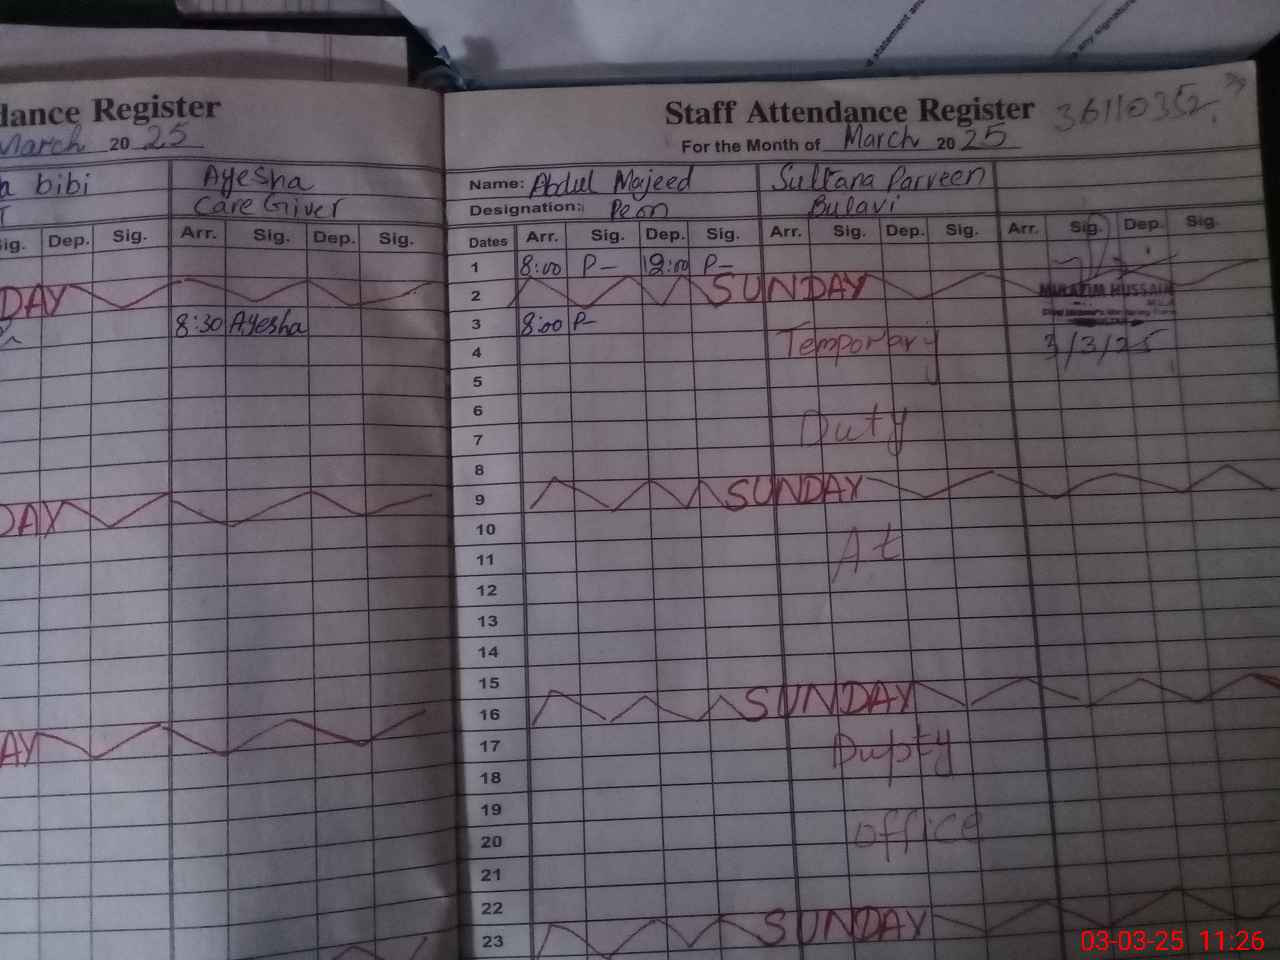 statement and
any signature
dance Register
March 20 25
a bibi Ayesha
Care Giver
Sig. Dep. Sig. Arr. Sig. Dep. Sig.
DAY
8:30 Ayesha
DAY
AY
Staff Attendance Register 36110352
For the Month of March 20 25
Name: Abdul Majeed Sultana Parveen
Designation: Peon Bulavi
Dates Arr. Sig. Dep. Sig. Arr. Sig. Dep. Sig. Arr. Sig. Dep. Sig.
1 8:00 P- 12:00 P-
2 SUNDAY
HUSSAIN
3 8:00 P-
4 Temporary 3/3/25
5
6
7 Duty
8
9 SUNDAY
10
11 At
12
13
14
15
16 SUNDAY
17 Dupty
18
19
20 office
21
22
23 SUNDAY
03-03-25 11:26